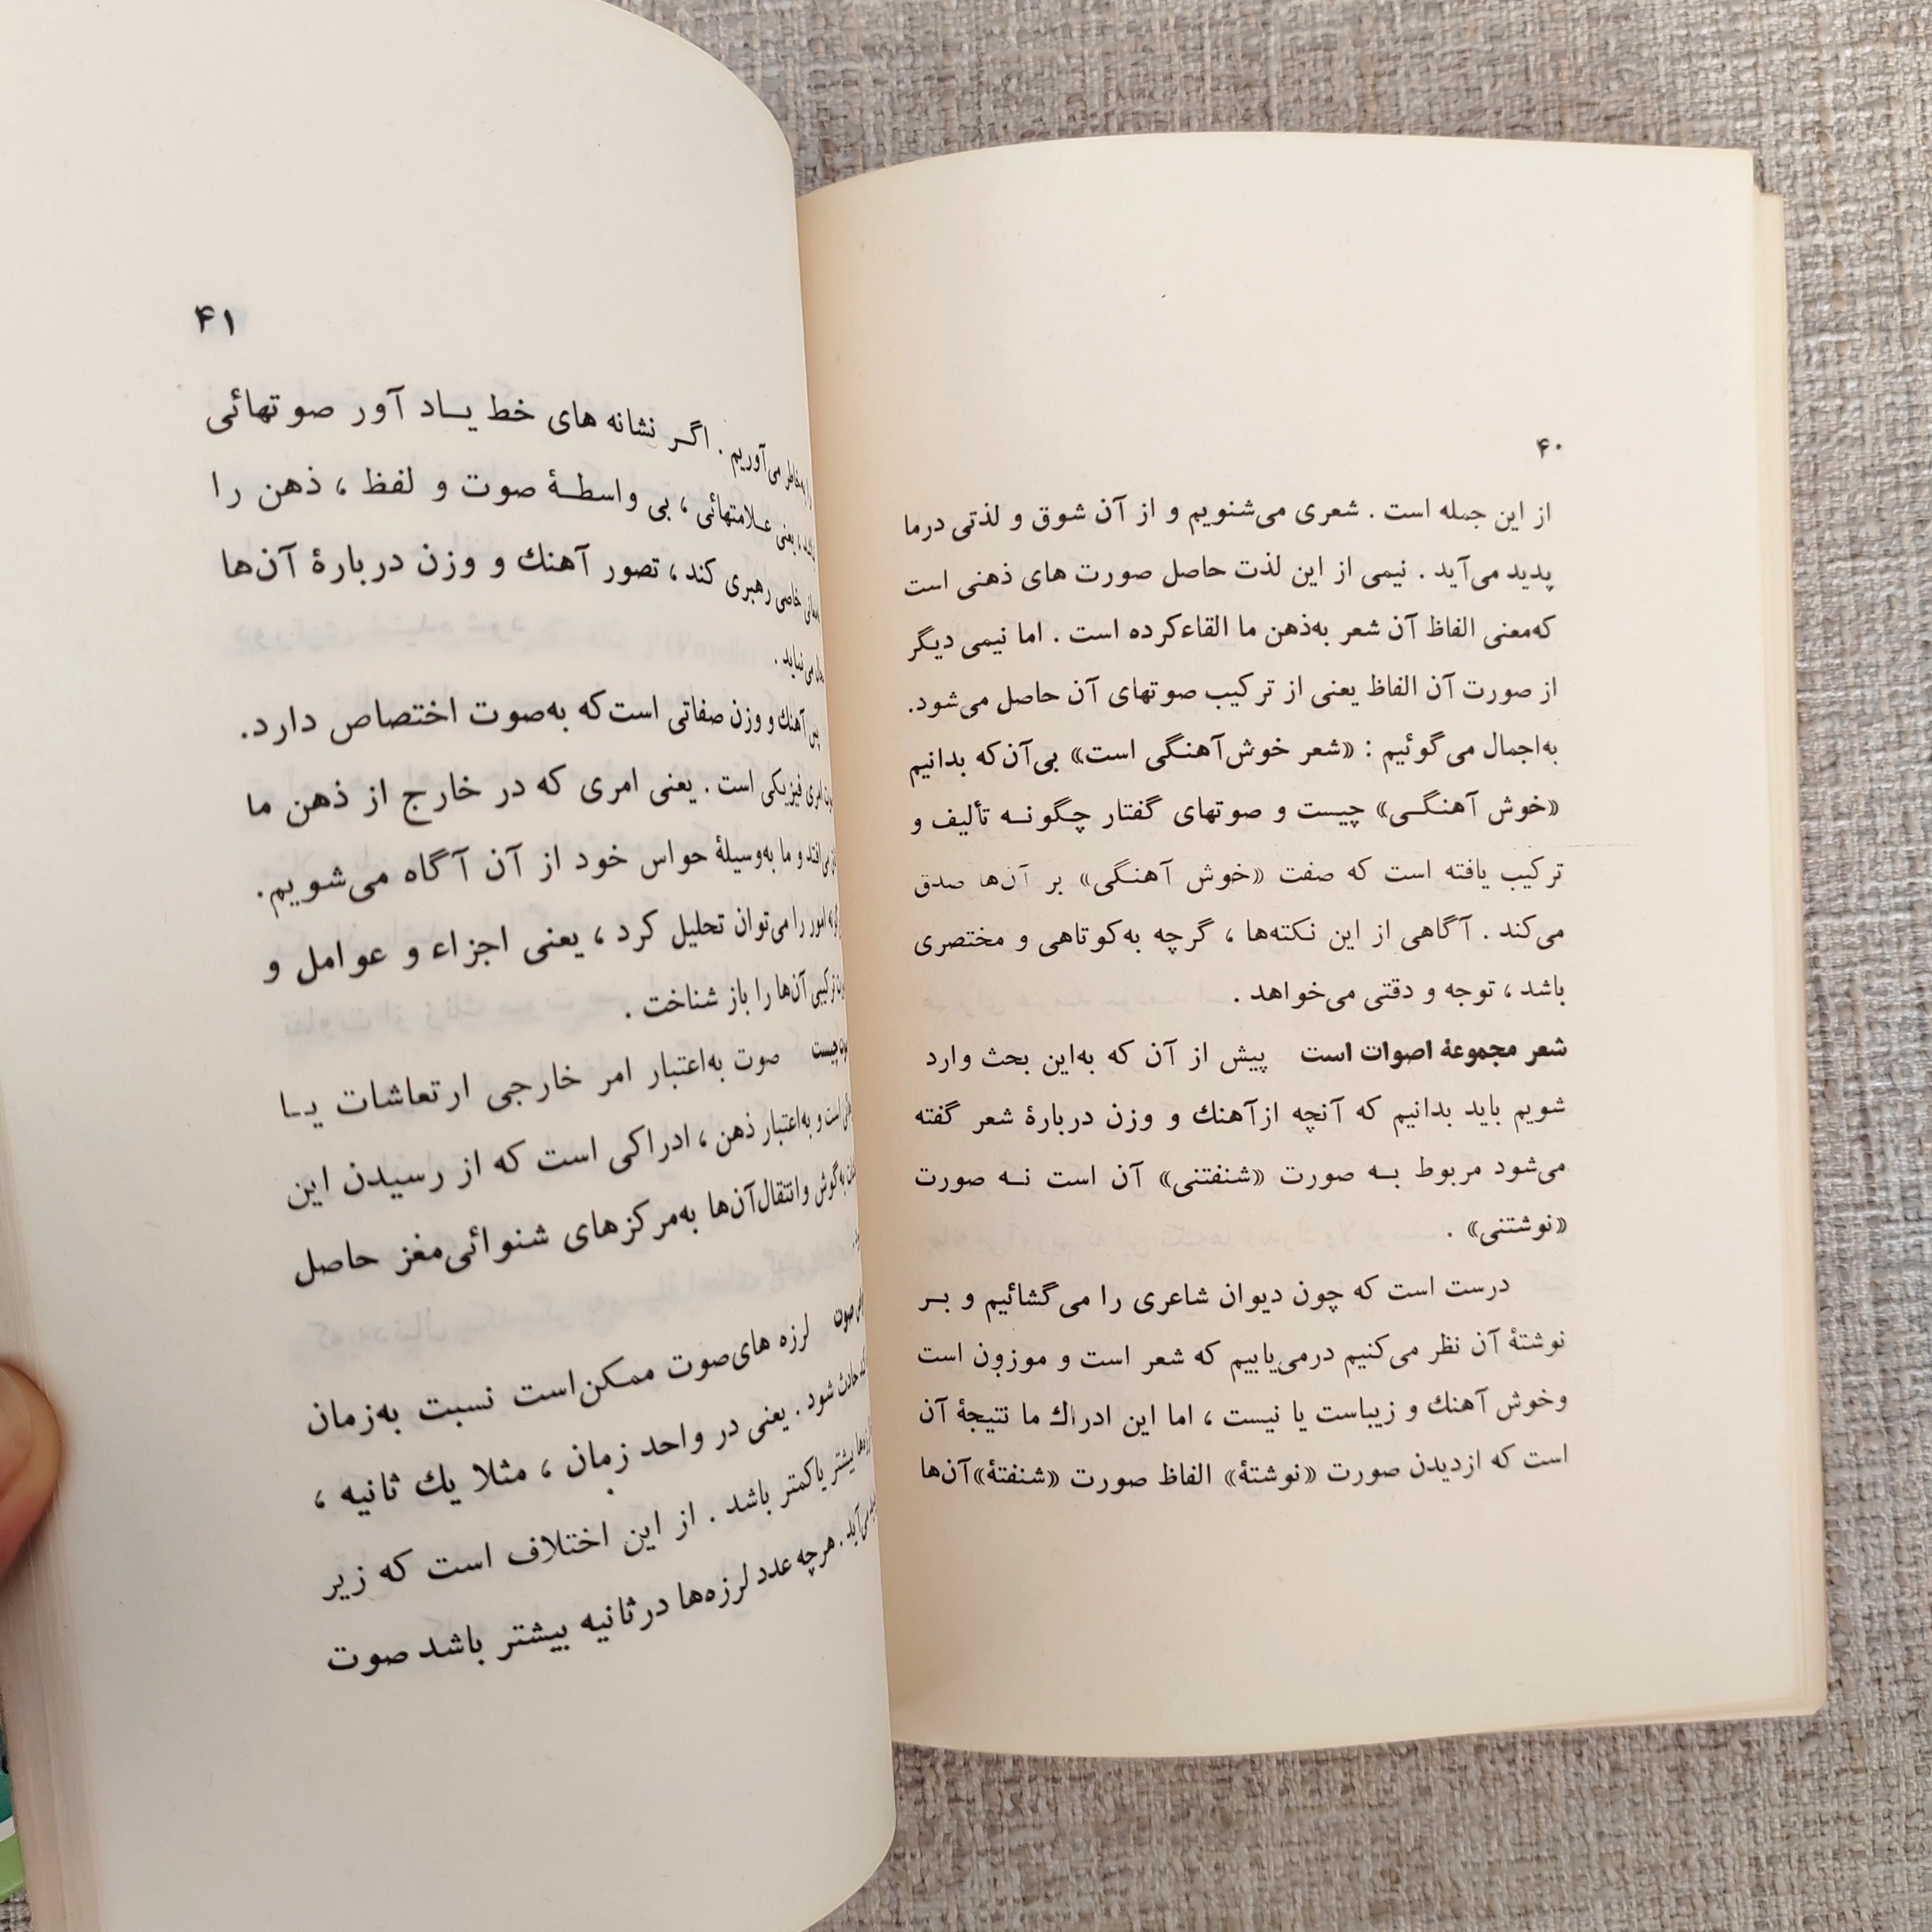 ۴۰
از این جمله است . شعری می‌شنویم و از آن شوق و لذتی درما
پدید می‌آید . نیمی از این لذت حاصل صورت های ذهنی است
که‌معنی الفاظ آن شعر به‌ذهن ما القاءکرده است . اما نیمی دیگر
از صورت آن الفاظ یعنی از ترکیب صوتهای آن حاصل می‌شود.
به‌اجمال می‌گوئیم : «شعر خوش‌آهنگی است» بی‌آن‌که بدانیم
«خوش آهنگــی» چیست و صوتهای گفتار چگونــه تألیف و
ترکیب یافته است که صفت «خوش آهنگی» بر آن‌ها صدق
می‌کند . آگاهی از این نکته‌ها ، گرچه به‌کوتاهی و مختصری
باشد ، توجه و دقتی می‌خواهد .
شعر مجموعهٔ اصوات است پیش از آن که به‌این بحث وارد
شویم باید بدانیم که آنچه ازآهنك و وزن دربارهٔ شعر گفته
می‌شود مربوط بــه صورت «شنفتنی» آن است نــه صورت
«نوشتنی» .
درست است که چون دیوان شاعری را می‌گشائیم و بــر
نوشتهٔ آن نظر می‌کنیم درمی‌یابیم که شعر است و موزون است
وخوش آهنك و زیباست یا نیست ، اما این ادراك ما نتیجهٔ آن
است که ازدیدن صورت «نوشتهٔ» الفاظ صورت «شنفتهٔ»آن‌ها
۴۱
به‌خاطر می‌آوریم . اگــر نشانه های خط یــاد آور صوتهائی
یعنی عــلامتهائی ، بی واسطــهٔ صوت و لفظ ، ذهن را
خاصی رهبری کند ، تصور آهنك و وزن دربارهٔ آن‌ها
می‌نیاید .
پس آهنك و وزن صفاتی است‌که به‌صوت اختصاص دارد.
امری فیزیکی است . یعنی امری که در خارج از ذهن ما
می‌افتد و ما به‌وسیلهٔ حواس خود از آن آگاه می‌شویم.
امور را می‌توان تحلیل کرد ، یعنی اجزاء و عوامل و
ترکیبی آن‌ها را باز شناخت .
چیست صوت به‌اعتبار امر خارجی ارتعاشات یــا
است و به‌اعتبار ذهن ، ادراکی است که از رسیدن این
به‌گوش وانتقال‌آن‌ها به‌مرکزهای شنوائی‌مغز حاصل
صوت لرزه های‌صوت ممکن‌است نسبت به‌زمان
حادث شود . یعنی در واحد زمان ، مثلا یك ثانیه ،
بیشتر یاکمتر باشد . از این اختلاف است که زیر
می‌آید . هرچه عدد لرزه‌ها درثانیه بیشتر باشد صوت